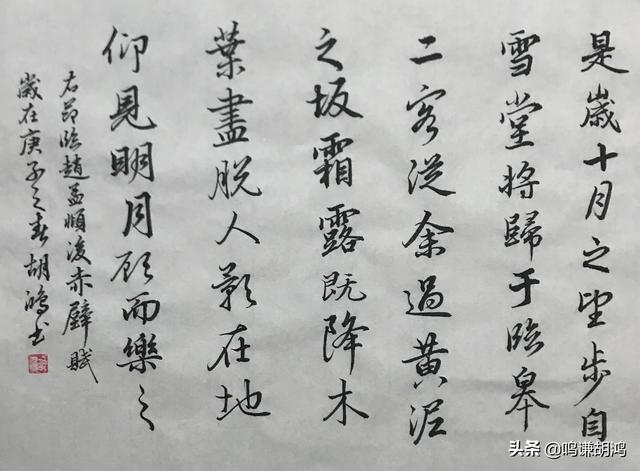 是歲十月之望步自
雪堂將歸于臨皋
二客從余過黄泥
之坂霜露既降木
葉盡脱人影在地
仰見明月顾而樂之
右節临趙孟頫後赤壁賦
歲在庚子之春胡鴻书
头条 @鸣谦胡鸿